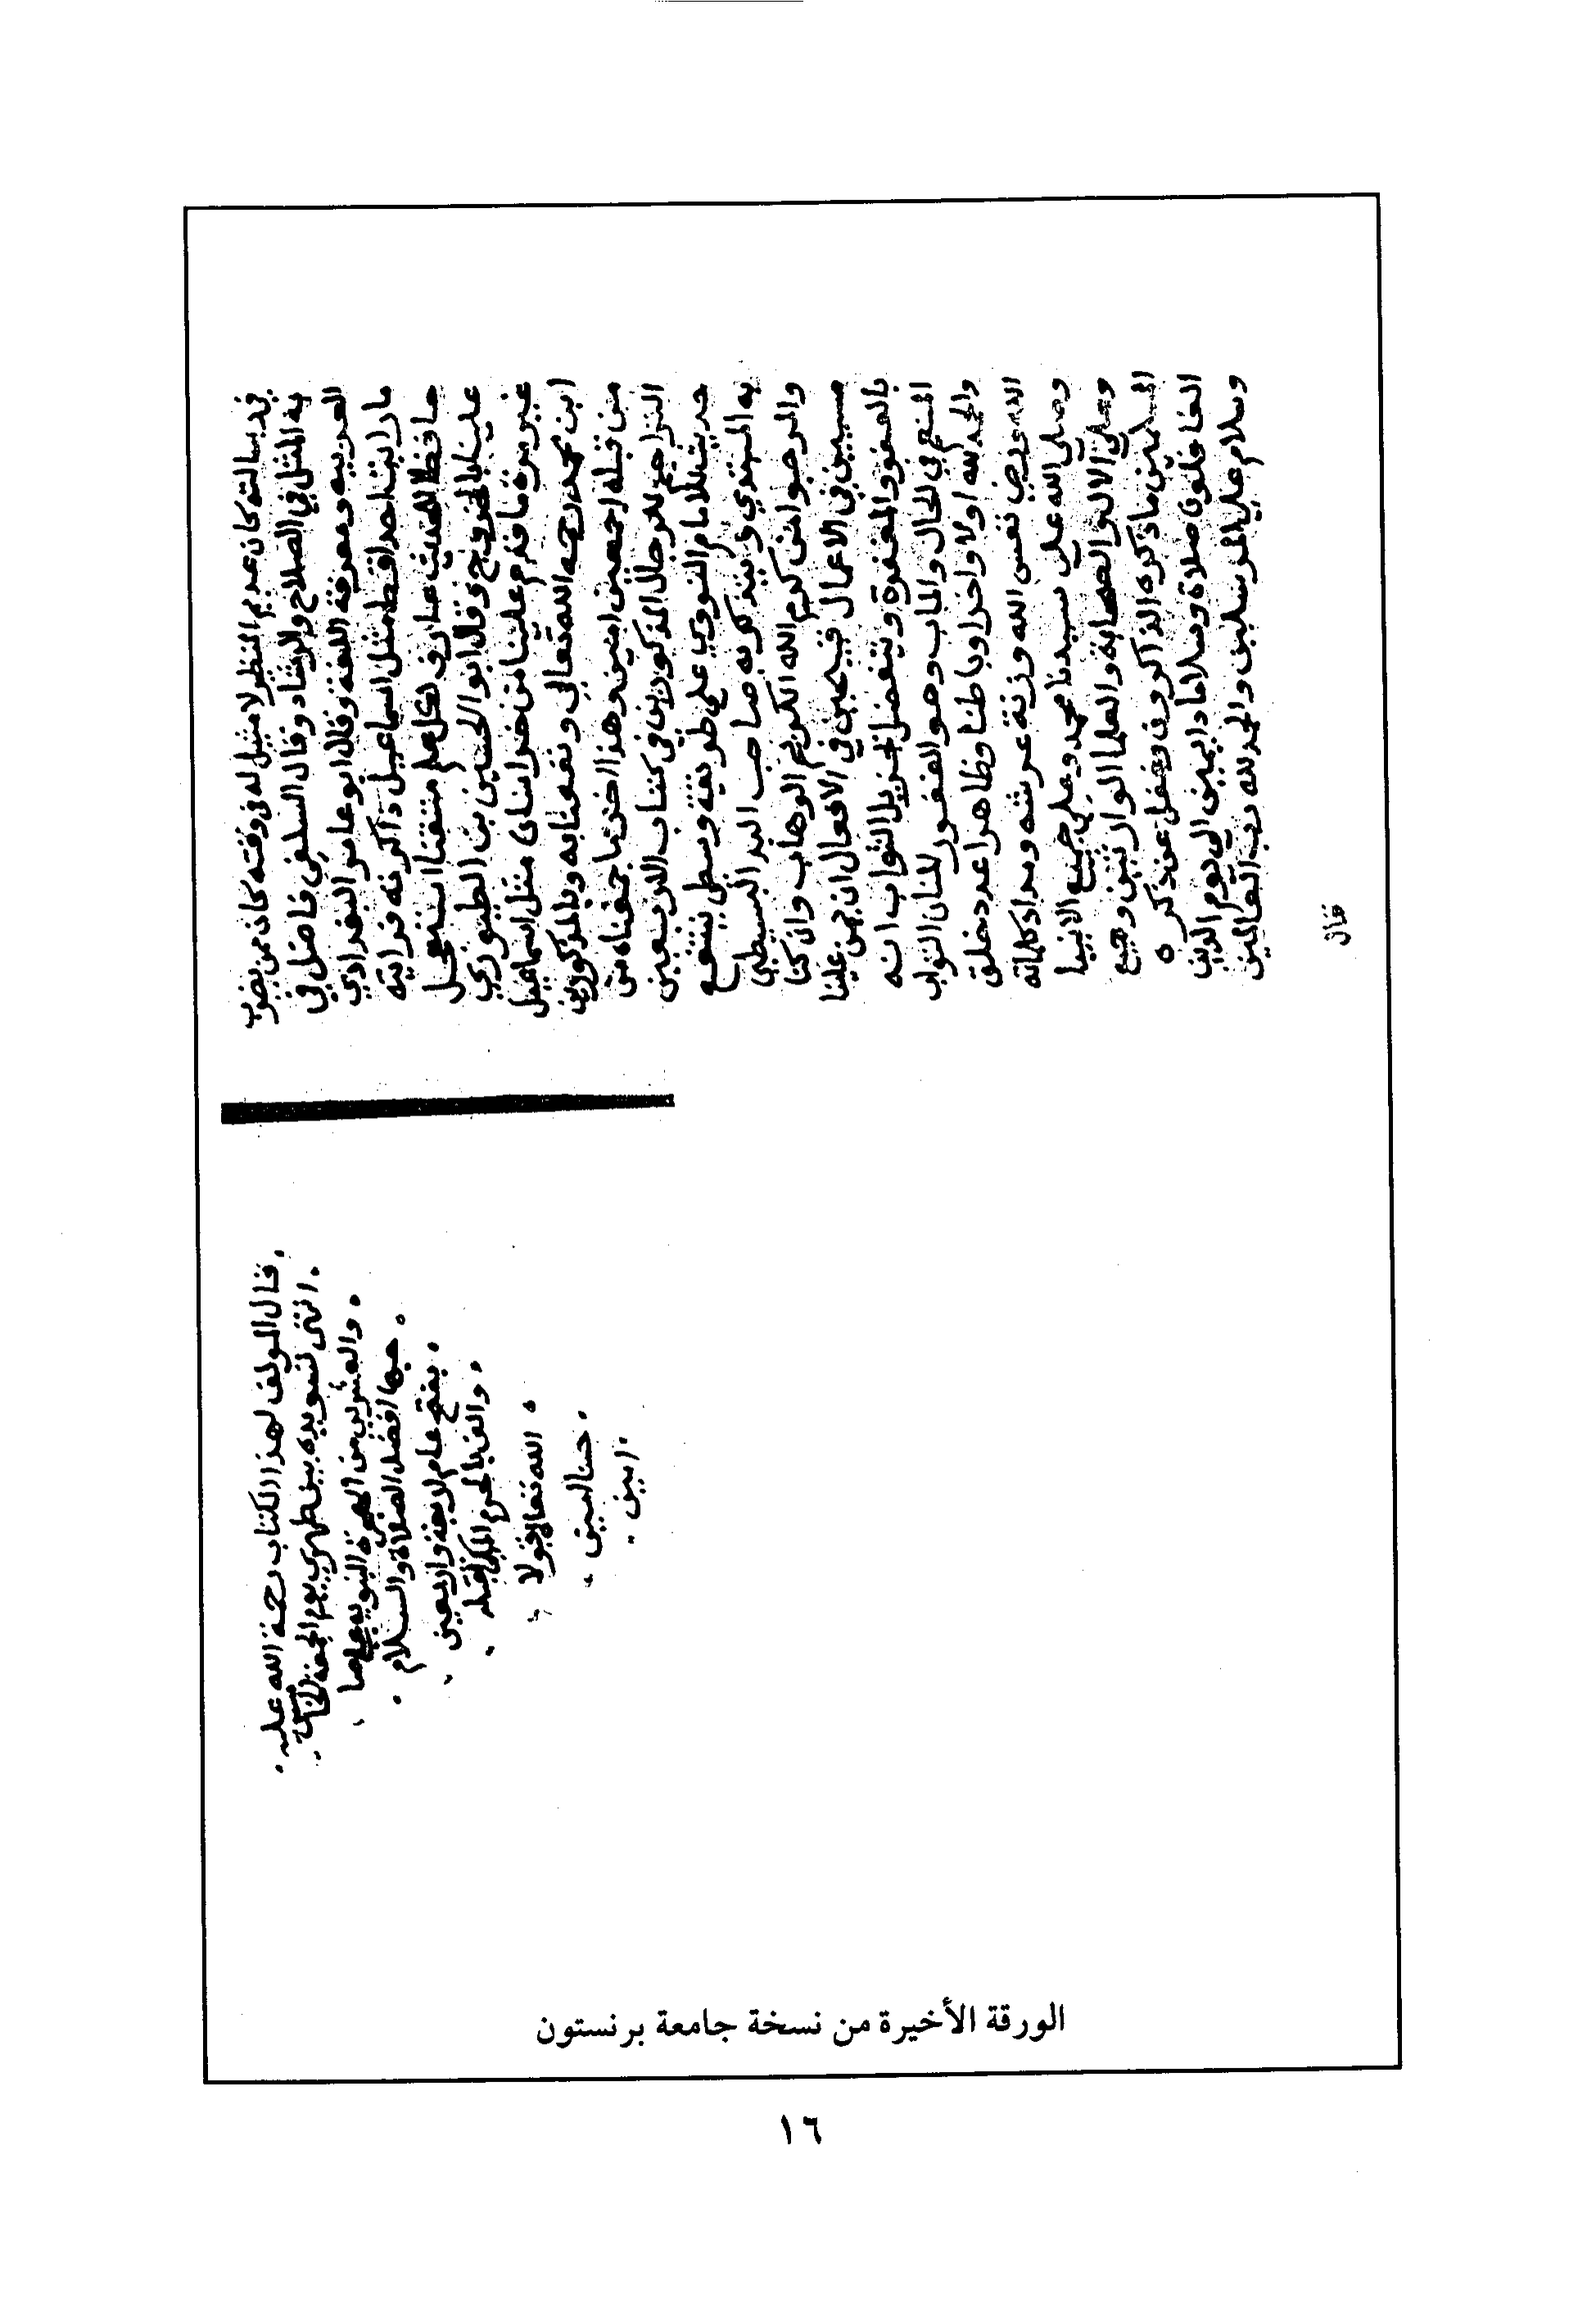 قد سالته كان عديم النظير لا مثيل له في وقته كان ممن يضرب
به المثل في الصلاح والرشاد وقال السلفي فاضل في
العربيه ومعرفة اللغة وقال ابو عامر البغدادي
ما رايت احدا قط مثل اسماعيل ذاكرته فرايته
حافظا للحديث عارف بكل علم متفننا استعجل
علينا بالخروج وقال ابو الحسين بن الطيوري
غير مرة ما قدم علينا من خراسان مثل اسماعيل
ابن محمد رحمه الله تعالى ونفعنا به وبالمذكورين
من قبله اجمعين امين وهذا اخر ما جمعناه من
التراجم للرجال المذكورين في كتاب الاربعين
حديث للامام النووي علي طريقة وسطي ينتفع
به المبتدي ويتذكر به صاحب اليد البسيطي
والمرجوا من كرم الله الكريم الوهاب وان كنا
مسيين في الاعمال قبيحين في الافعال ان يمن علينا
بالعفو والمغفرة ويتفضل بجزيل الثواب انه
المنعم في الحال والماب وهو الغفور المنان التواب
والحمد لله اولا واخرا وباطنا وظاهرا عدد خلق
الله ورضي نفس الله وزنة عرشه ومداد كلماته
وصلي الله علي سيدنا محمد وعلي جميع الانبيا
وعلي الال والصحابة والعلما الوارثين وجميع
المسلمين ما ذكره الذاكرون وغفل عن ذكره
الغافلون صلاة وسلاما دايمين الي يوم الدين
وسلام علي المرسلين والحمد لله رب العالمين
قال
قال المولف لهذا الكتاب رحمة الله عليه
انتهى تسويده بين ظهري يوم الجمعة الخامس
والعشرين من الهجرة النبوية علي صا
حبها افضل الصلاة والسلام
بفتح عام لاربعة واربعين
والف بالحرم المكي تقبله
الله تعالى قبولا
حسنا امين
امين
الورقة الأخيرة من نسخة جامعة برنستون
١٦